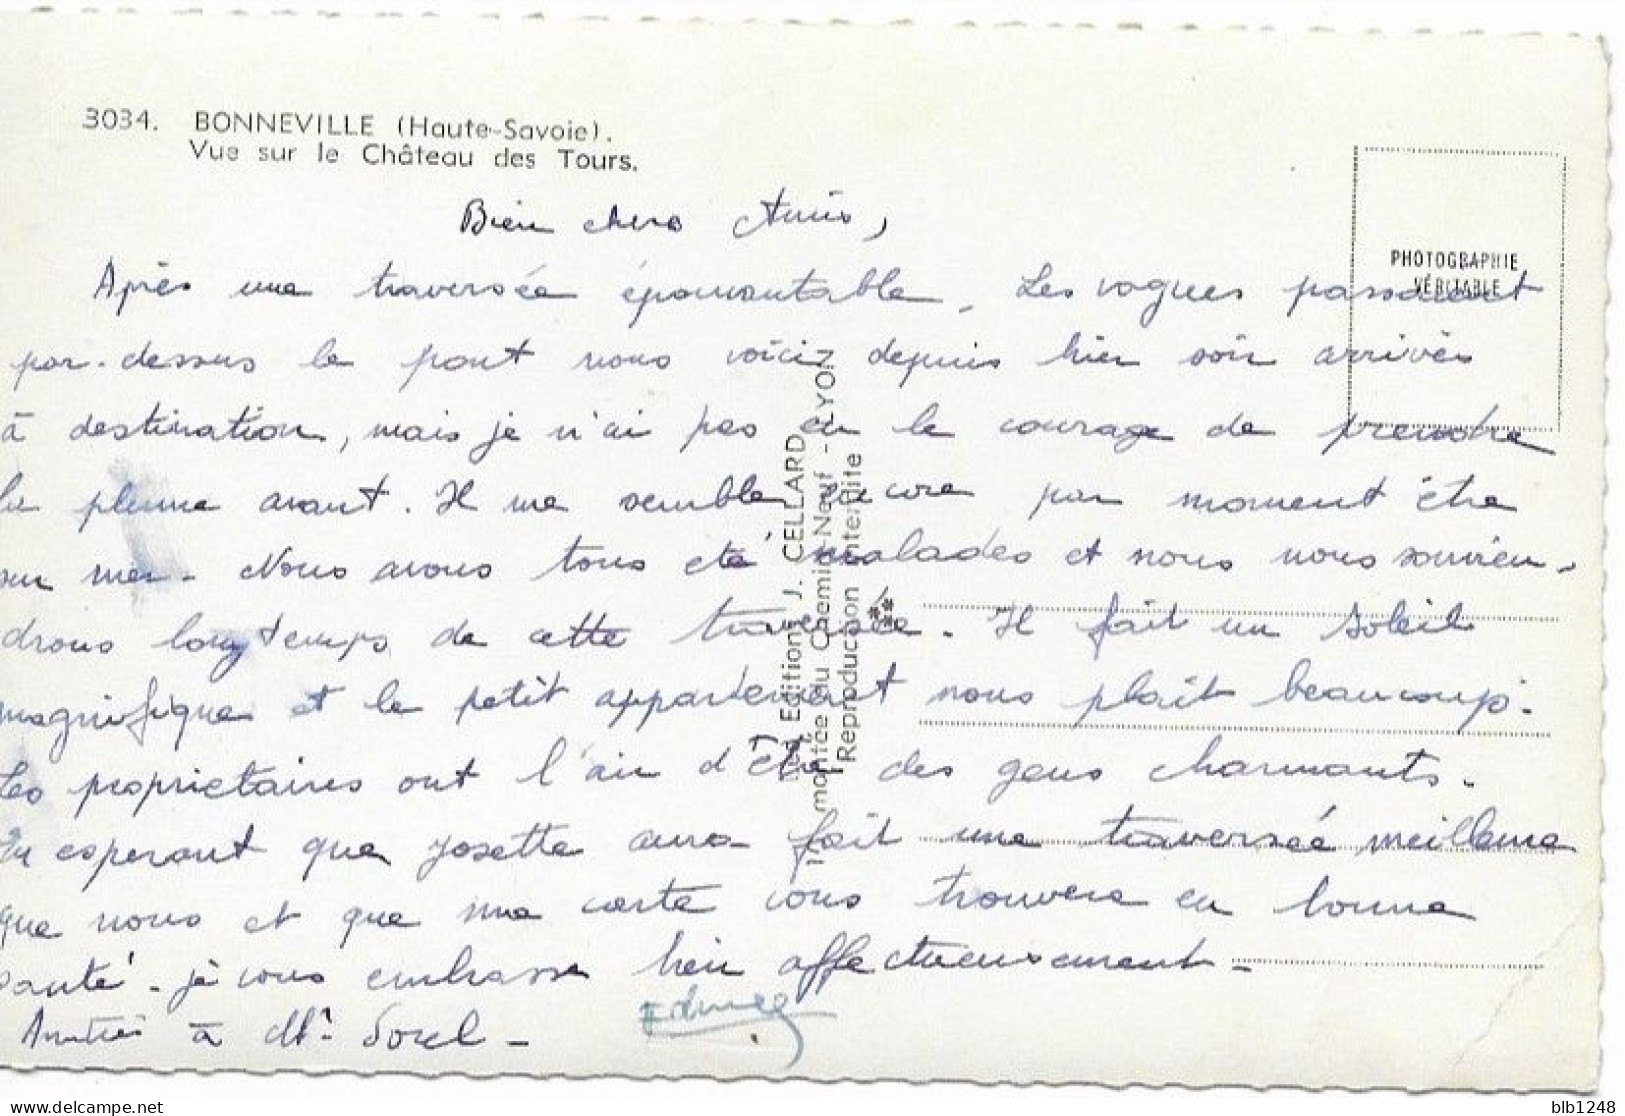 3034. BONNEVILLE (Haute-Savoie).
Vue sur le Château des Tours.
PHOTOGRAPHIE
VÉRITABLE
Bien chers Amis,
Après une traversée épouvantable. Les vagues passaient
par-dessus le pont nous voici depuis hier soir arrivés
à destination, mais je n'ai pas eu le courage de prendre
la plume avant. Il me semble encore par moment être
sur mer. Nous avons tous été malades et nous nous souvien-
drons longtemps de cette traversée. Il fait un soleil
magnifique et le petit appartement nous plait beaucoup.
Les propriétaires ont l'air d'être des gens charmants.
En esperant que Josette aura fait une traversée meilleure
que nous et que ma carte vous trouvera en bonne
santé. je vous embrasse bien affectueusement.
Edmée
Amitiés à Mr. Sorel.
Editions J. CELLARD
montée du Chemin-Neuf - LYON
Reproduction interdite
blb1248